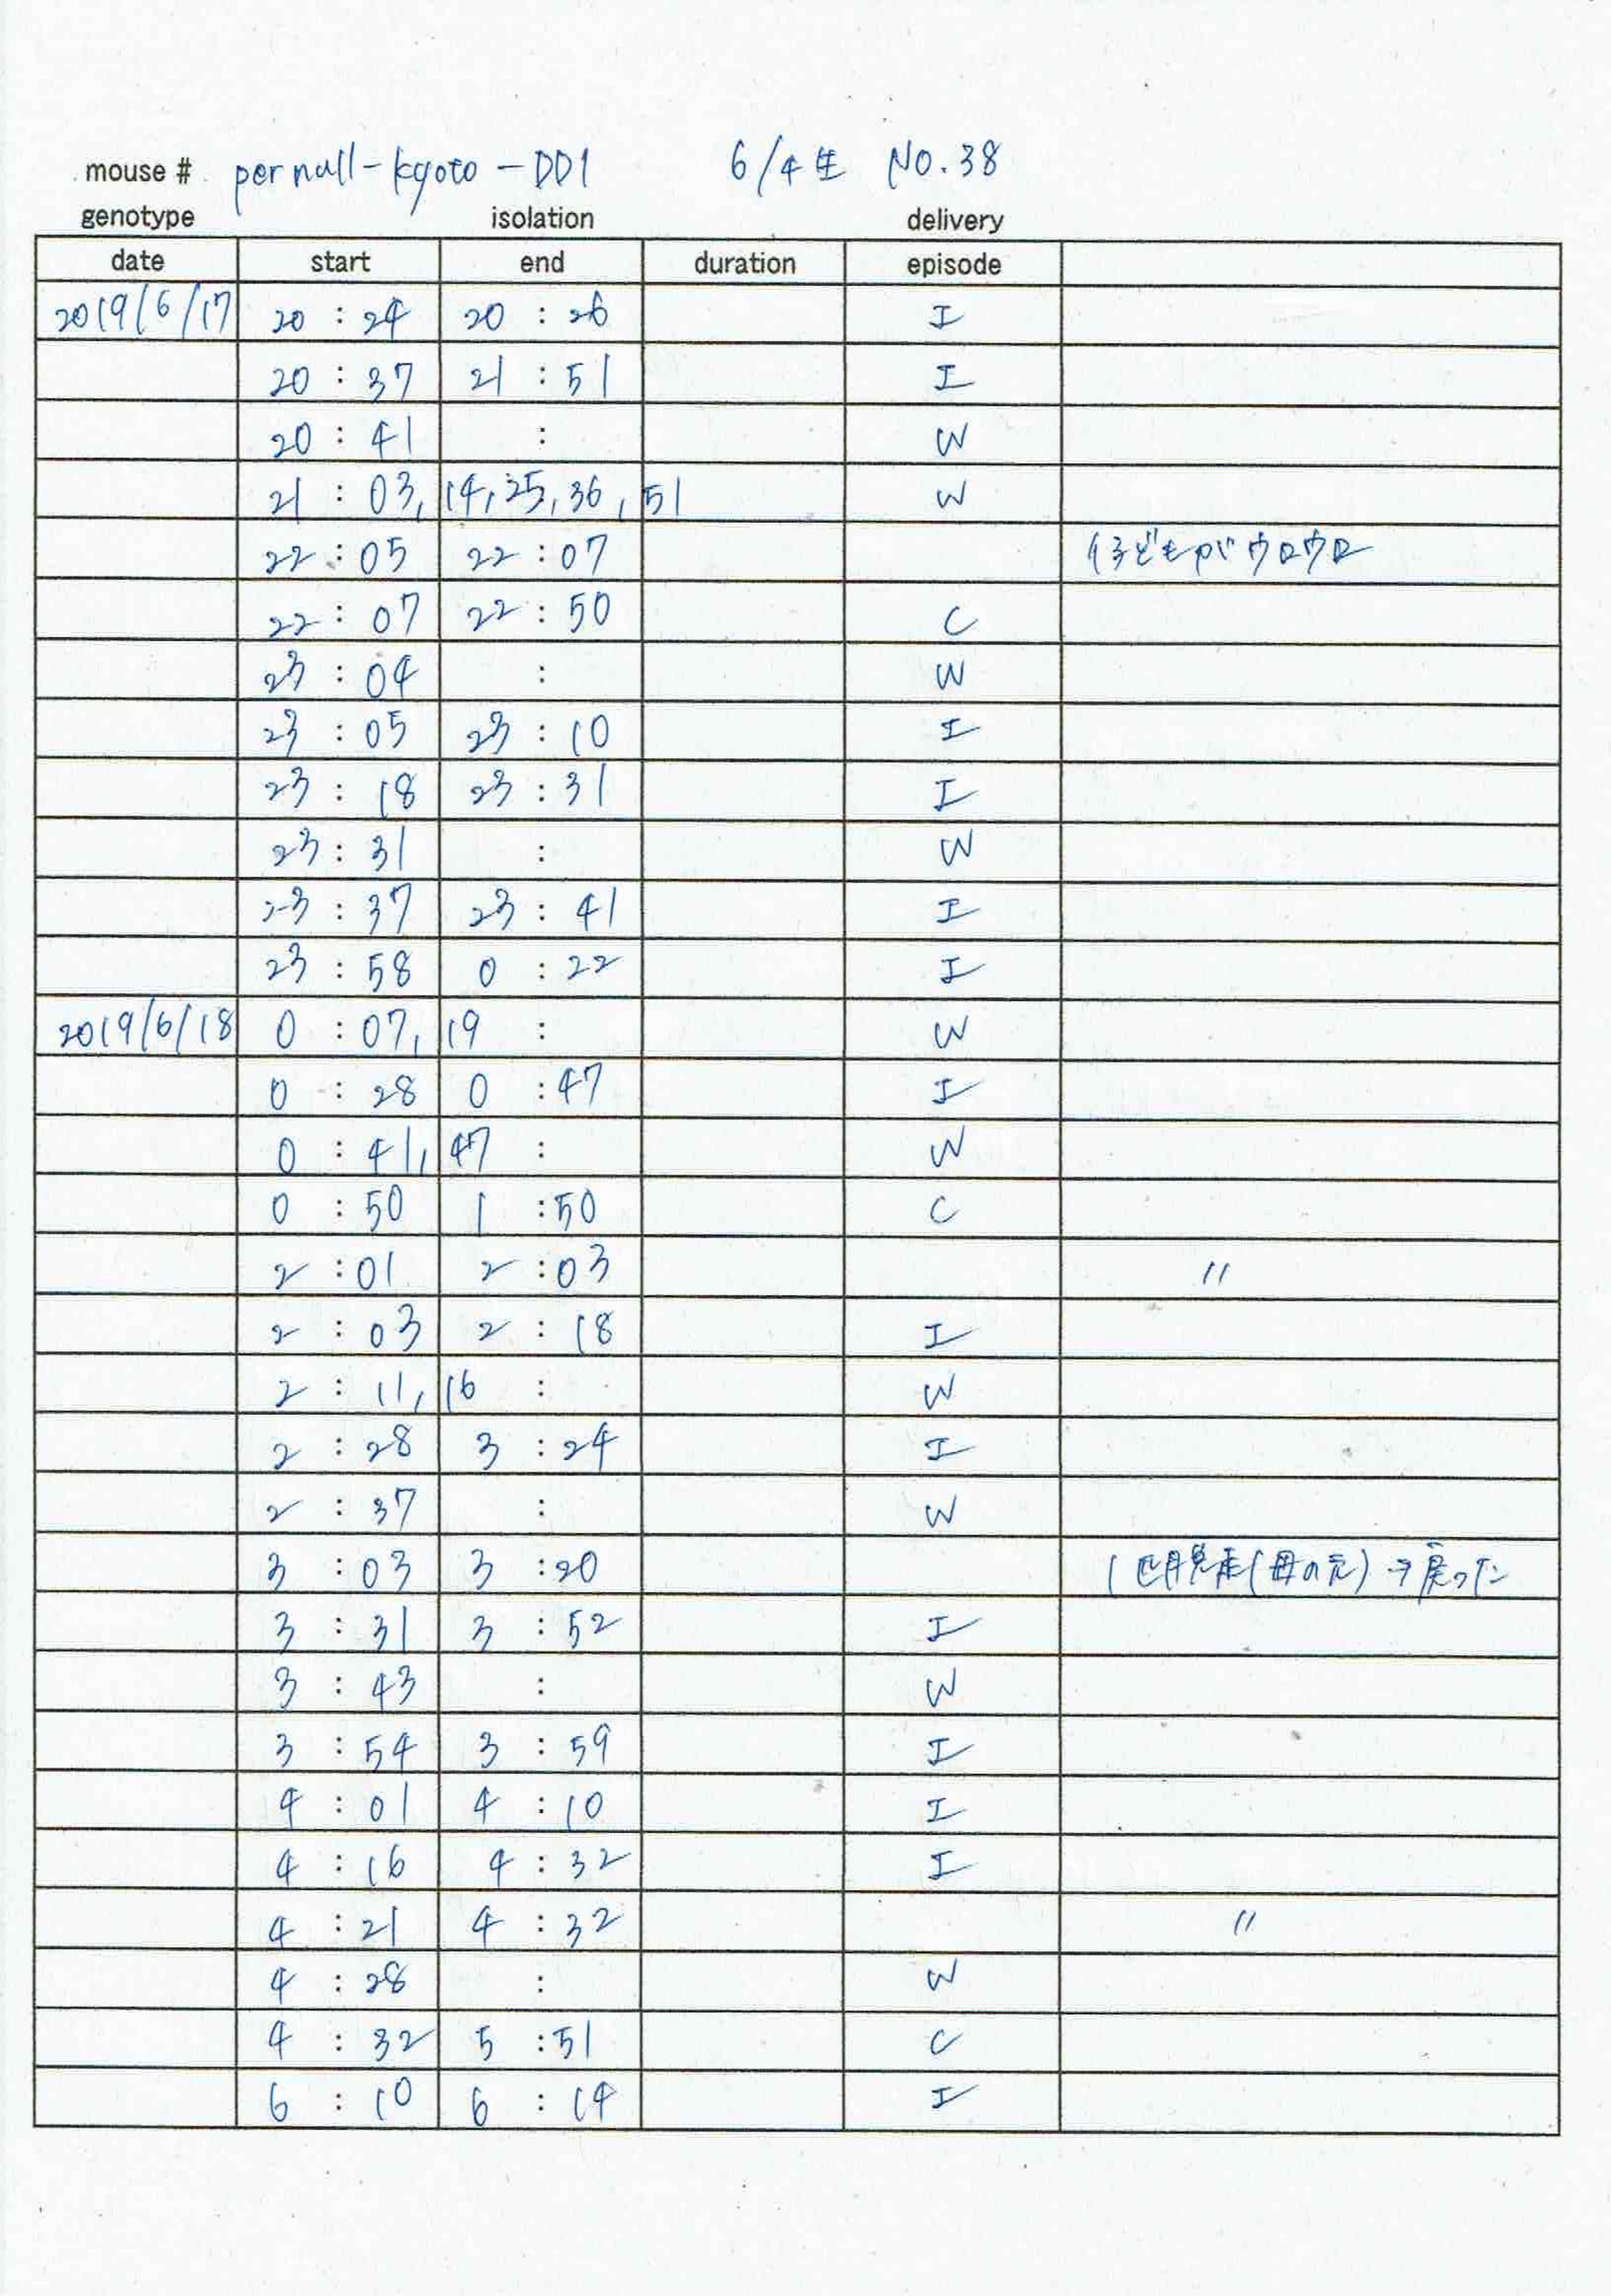 mouse # per null-kyoto-DD1 6/4生 No.38
genotype isolation delivery
date start end duration episode
2019/6/17 20:24 20:26 I
20:37 21:51 I
20:41 : W
21:03, 14, 25, 36, 51 W
22:05 22:07 子どもがウロウロ
22:07 22:50 C
23:04 : W
23:05 23:10 I
23:18 23:31 I
23:31 : W
23:37 23:41 I
23:58 0:22 I
2019/6/18 0:07, 19 : W
0:28 0:47 I
0:41, 47 : W
0:50 1:50 C
2:01 2:03 〃
2:03 2:18 I
2:11, 16 : W
2:28 3:24 I
2:37 : W
3:03 3:20 1匹脱走(母の元) 戻った
3:31 3:52 I
3:43 : W
3:54 3:59 I
4:01 4:10 I
4:16 4:32 I
4:21 4:32 〃
4:28 : W
4:32 5:51 C
6:10 6:14 I